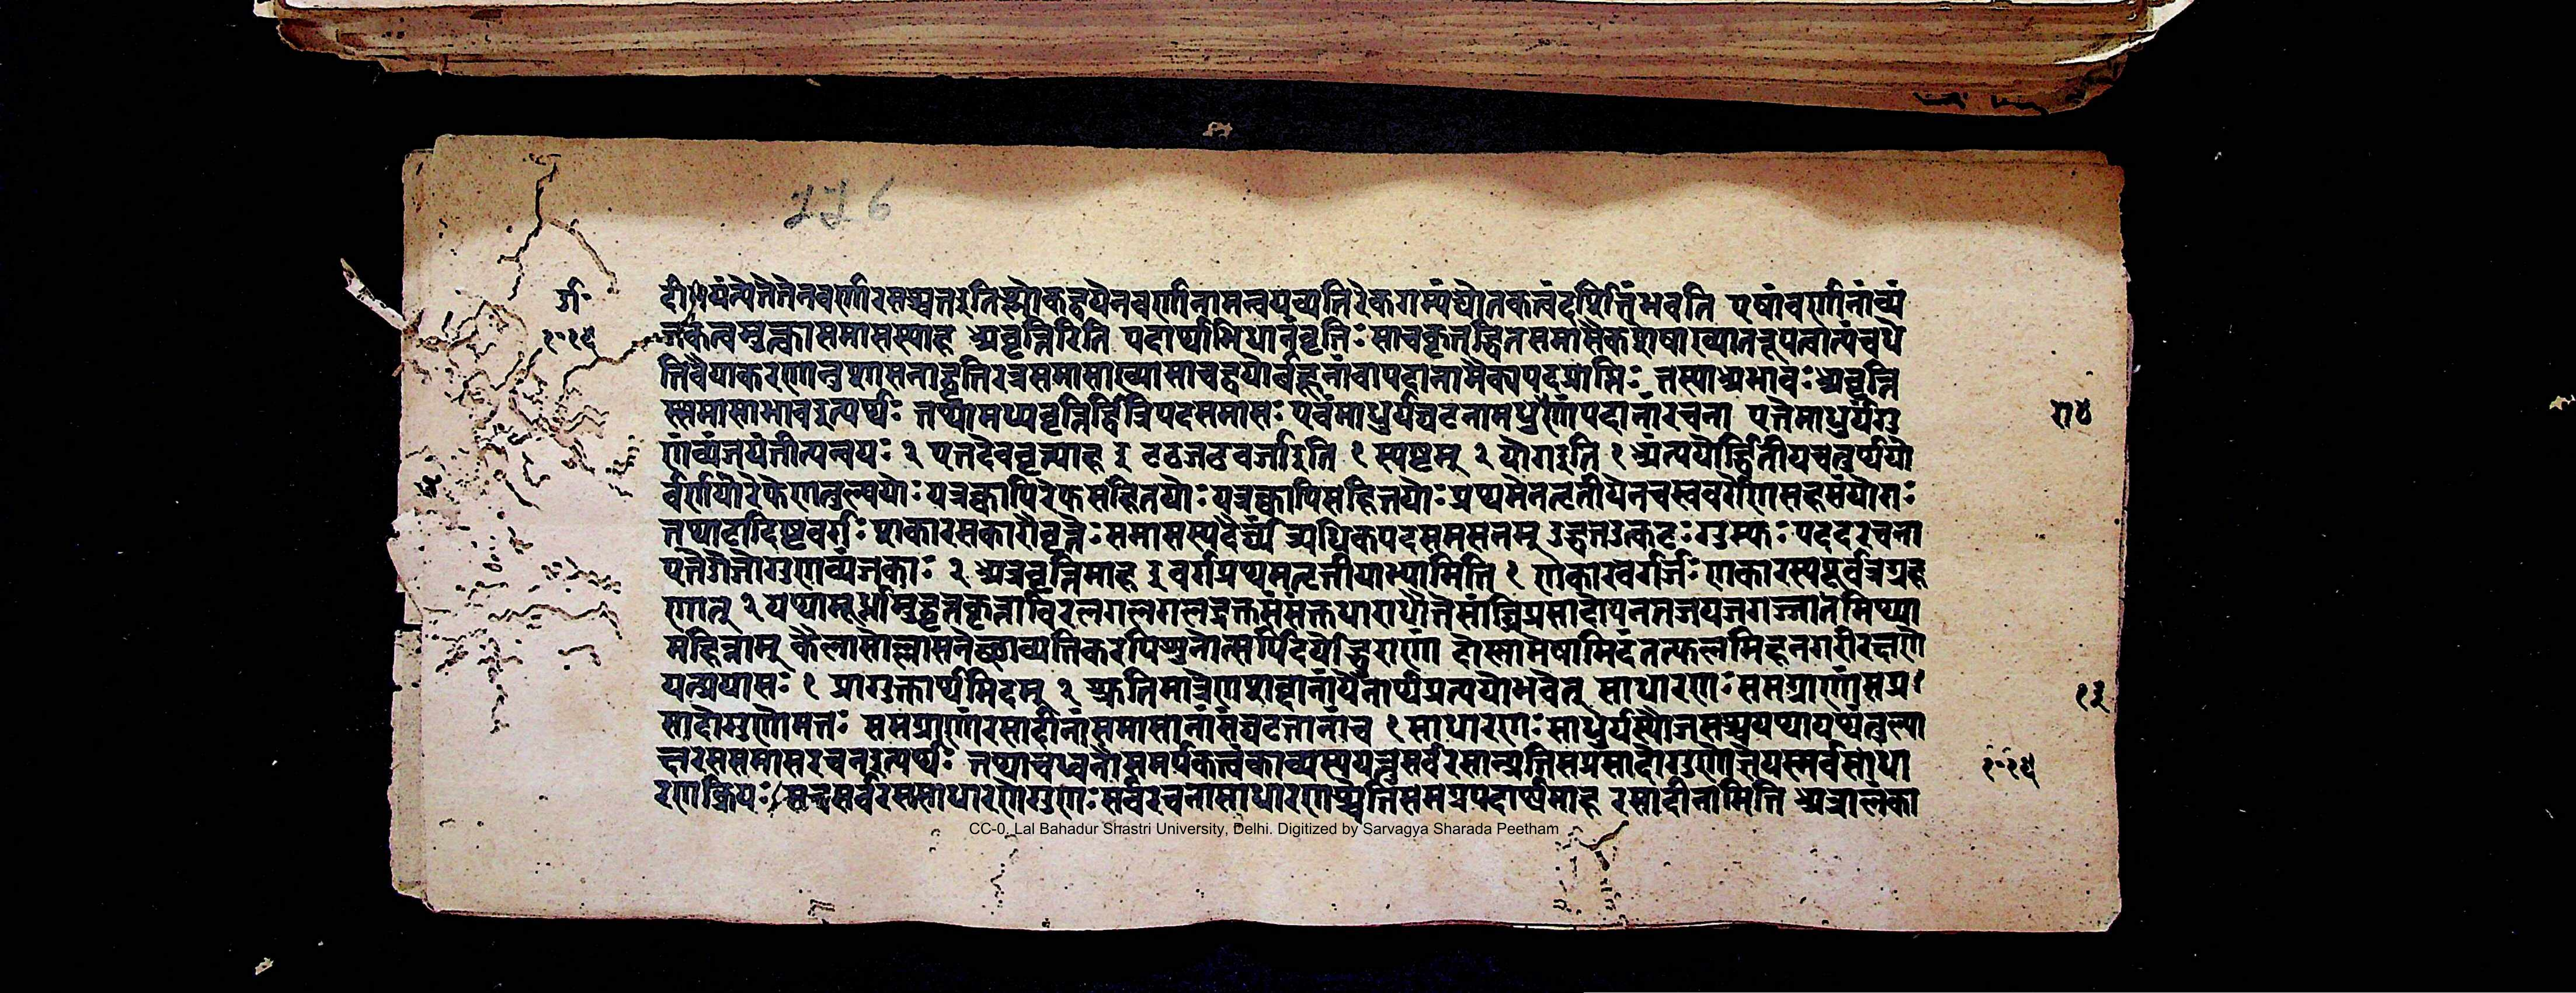 226
दीप्यंत्येतेतेनवर्णारसश्च्युतइतिश्लोकद्वयेनवर्णानामन्वयव्यतिरेकगम्यंद्योतकत्वंदर्शितंभवति एषांवर्णानांव्यं
जकत्वमुक्त्वासमासस्याह अवृत्तिरिति पदार्थाभिधानंवृत्तिः साचकृत्तद्धितसमासैकशेषाख्यातरूपत्वात्पंचधे
तिवैयाकरणानुशासनाद्वृत्तिरत्रसमासाख्या साचद्वयोर्बहूनांवापदानामैक्यपदप्राप्तिः तस्याअभावः अवृत्ति
स्समासाभावइत्यर्थः तथामध्यवृत्तिर्द्वित्रिपदसमासः एवंमाधुर्यघटनामधुराणांपदानांरचना एतेमाधुर्यंगु
णंव्यंजयंतीत्यन्वयः २ एतदेववृत्त्याह ३ टठजठवर्जाइति १ स्पष्टम् २ योगइति १ अंत्ययोर्द्वितीयचतुर्थयो
र्वर्णयोरेफेणतुल्ययोः यत्रक्वापिरेफसहितयोः यत्रक्वापिसहितयोः प्रथमेनतृतीयेनचस्ववर्गेणसहसंयोगः
तथाटादिष्टवर्गः शकारसकारौवृत्तेः समासस्यदैर्घ्यं अधिकपदसमसनम् उद्धतउत्कटः गुम्फः पददरचना
एतेओजोगुणव्यंजकाः २ अत्रवृत्तिमाह ३ वर्गप्रथमतृतीयाभ्यामिति १ णकारवर्गर्जः णकारस्यपूर्वत्रग्रह
णात् २ यथामूर्ध्नामुद्वृत्तकृत्ताविरलगलगलद्रक्तसंसक्तधाराधौतेसांघ्रिप्रसादोपनतजयजगज्जातमिथ्या
महिम्नाम् कैलासोल्लासनेच्छाव्यतिकरपिशुनोत्सर्पिदर्पोद्धुराणां दोष्णांमेषामिदंतत्फलमिहनगरीरक्षणे
यत्प्रयासः १ प्रागुक्तार्थमिदम् २ श्रुतिमात्रेणशब्दानांयेनार्थप्रत्ययोभवेत् साधारणः समग्राणांसप्र
सादोगुणोमतः समग्राणांरसादीनांसमासानांसंघटनानांच १ साधारणः माधुर्यस्यौजसश्चयथायथंतुल्या
न्तरससमासरचनइत्यर्थः तथाचध्वनौसमर्पकत्वंकाव्यस्ययत्तुसर्वरसान्प्रतिसप्रसादोगुणोज्ञेयस्सर्वसाधा
रणक्रियः सचसर्वरससाधारणोगुणः सर्वरचनासाधारणश्चेतिसमग्रपदार्थमाह रसादीनामिति अत्रालंका
CC-0. Lal Bahadur Shastri University, Delhi. Digitized by Sarvagya Sharada Peetham